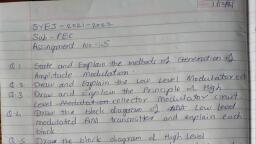 SYEJ - 2021-2022
Sub - PEC
Assignment No :- 5
Q.1 State and Explain the methods of Generation of
Amplitude Modulation.
Q.2 Draw and Explain the Low Level Modulator ckt
Q.3 Draw and Explain the Principle of High
Level Modulation collector Modulator circuit.
Q.4 Draw the block diagram of Low Level
modulated transmitter and explain each
block.
Q.5 Draw the block diagram of High Level